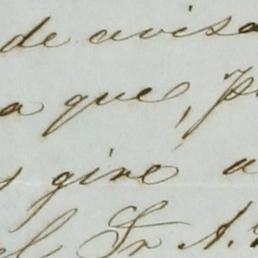 de avisa
a que, p
y gire a
el Sr A.